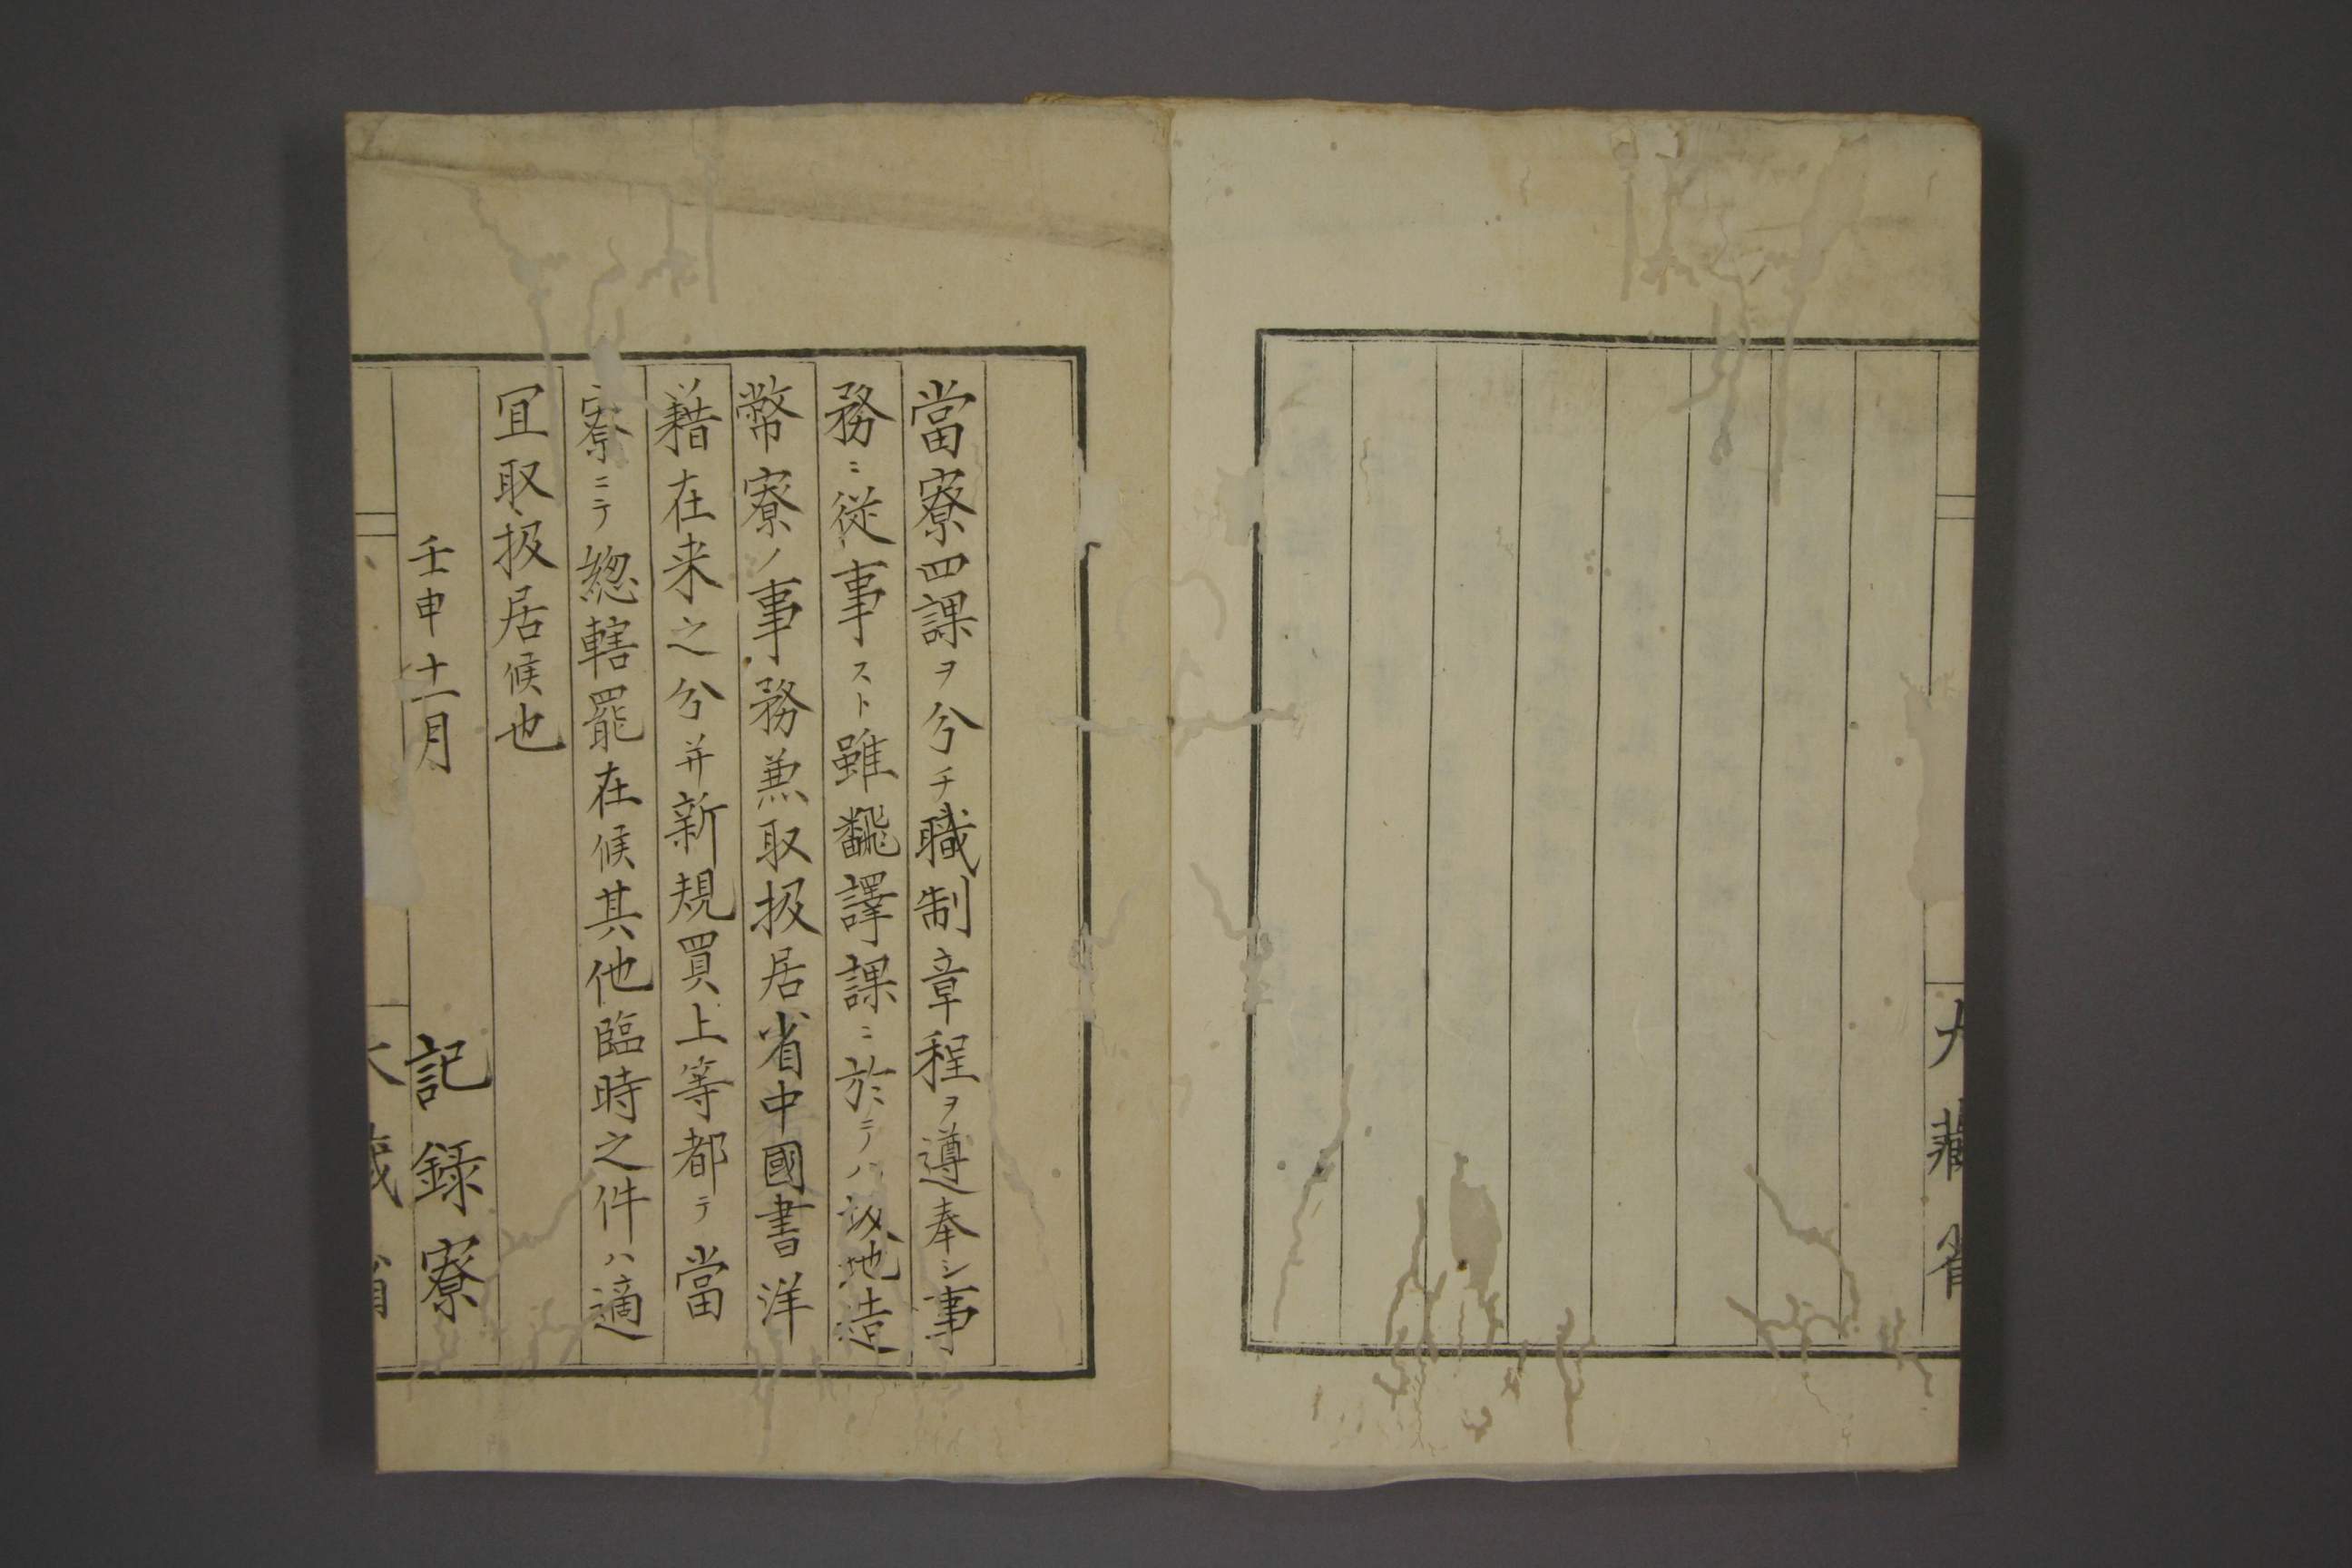 大藏省
當寮四課ヲ分チ職制章程ヲ遵奉シ事
務ニ從事スト雖飜譯課ニ於テハ坂地造
幣寮ノ事務兼取扱居省中國書洋
籍在来之分并新規買上等都テ當
寮ニテ總轄罷在候其他臨時之件ハ適
宜取扱居候也
壬申十一月　記録寮
大藏省